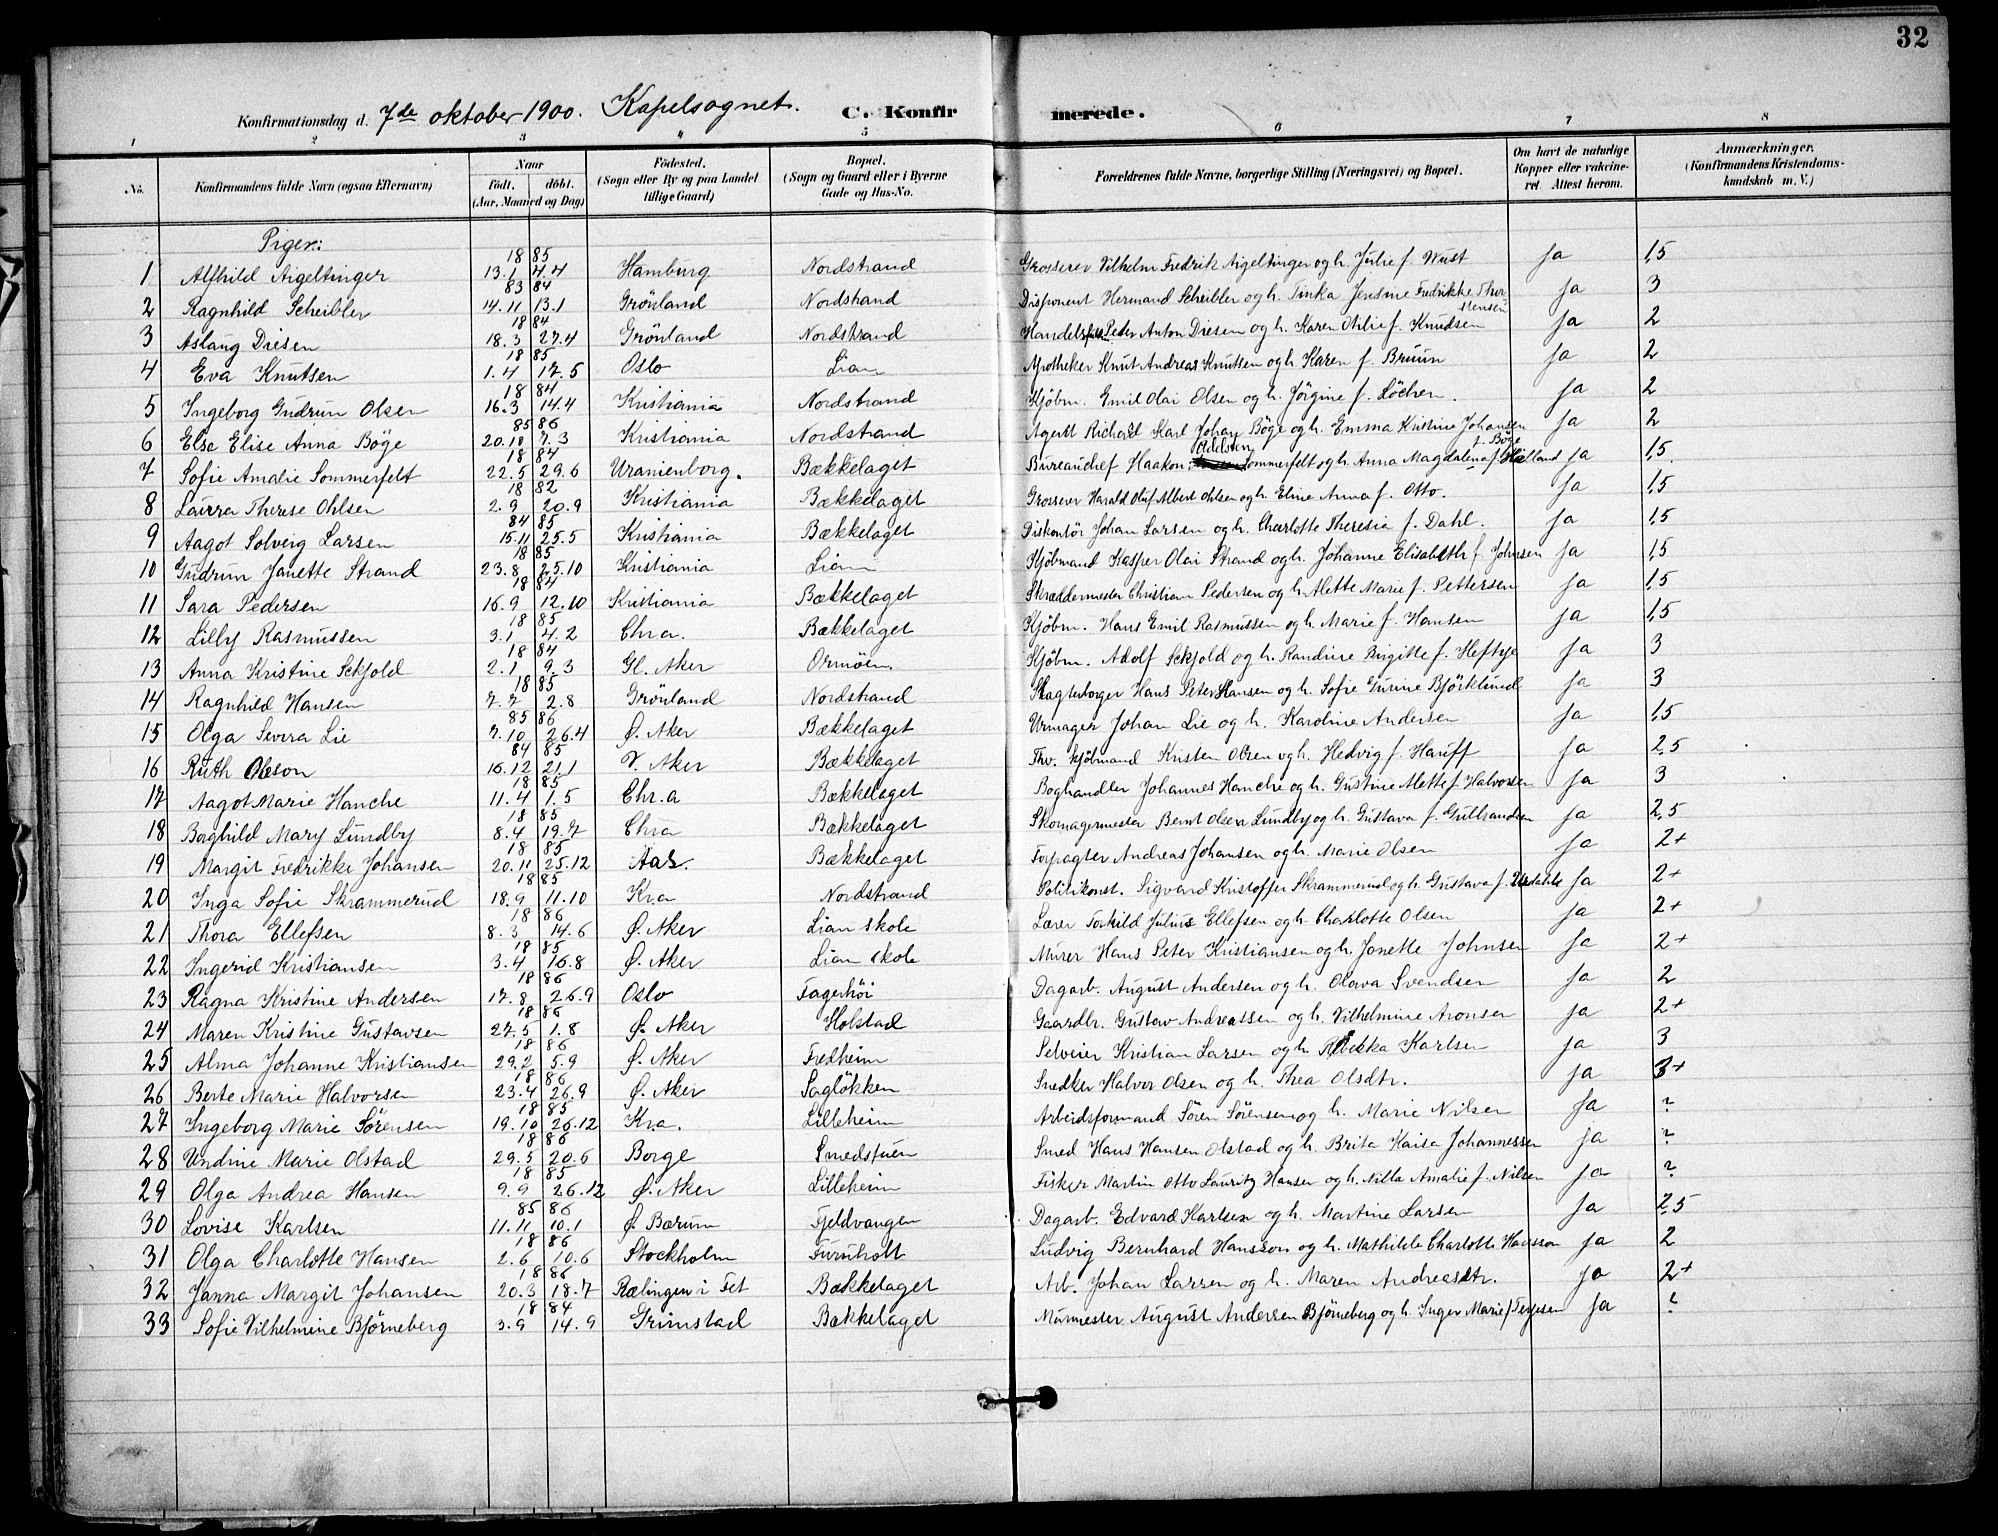 32
Konfirmationsdag d. 7de oktober 1900. Kapelsognet. C. Konfirmerede.
1 2 3 " 5 6 7 8
No. Konfirmandens fulde Navn (ogsaa Efternavn) Naar födt. döbt. (Aar, Maaned og Dag) Födested. (Sogn eller By og paa Landet tillige Gaard) Bopæl. (Sogn og Gaard eller i Byerne Gade og Hus-No. Forældrenes fulde Navne, borgerlige Stilling (Næringsvei) og Bopæl. Om havt de naturlige Kopper eller vakcineret. Attest herom. Anmærkninger. (Konfirmandens Kristendomskundskab m. V.)
Piger:
1 Alfhild Aigeltinger 18 85 13.1 4.4 Hamburg Nordstrand Grosserer Vilhelm Fredrik Aigeltinger og h. Julie f. Wust Ja 1,5
2 Ragnhild Scheibler 83 84 14.11 13.1 Grönland Nordstrand Disponent Hermand Scheibler og h. Tinka Jensine Fredrikke Thorstensen Ja 3
3 Aslaug Diesen 18 84 18.3 27.4 Grönland Nordstrand Peder Anton Diesen og h. Karen Othilie f. Knudsen Ja 2
4 Eva Knutsen 18 85 1.4 17.5 Oslo Lian Apotheker Knut Andreas Knutsen og h. Karen f. Bruun Ja 2
5 Ingeborg Gudrun Olsen 18 84 16.3 14.4 Kristiania Nordstrand Kjöbm. Emil Olai Olsen og h. Jörgine f. Löchen. Ja 2
6 Else Elise Anna Böge 85 86 20.10 7.3 Kristiania Nordstrand Agent Richard Karl Johan Böge og h. Emma Kristine Johansen f. Böge Ja 2
7 Sofie Amalie Sommerfelt 18 84 22.5 29.6 Uranienborg. Bækkelaget Bureauchef Haakon Adelsten Sommerfelt og h. Anna Magdalena f. Ja 1,5
8 Laura Therese Ohlsen 18 82 2.9 20.9 Kristiania Bækkelaget Grosserer Harald Oluf Albert Ohlsen og h. Eline Anna f. Otto. Ja 1,5
9 Aagot Solveig Larsen 84 85 15.11 25.5 Kristiania Bækkelaget Diskontör Johan Larsen og h. Charlotte Theresia f. Dahl. Ja 1,5
10 Gudrun Janette Strand 18 85 23.8 25.10 Kristiania Lian Kjöbmand Kasper Olai Strand og h. Johanne Elisabeth f. Johnsen Ja 1,5
11 Sara Pedersen 18 84 16.9 12.10 Kristiania Bækkelaget Skræddermester Christian Pedersen og h. Alette Marie f. Pettersen Ja 1,5
12 Lilly Rasmussen 18 85 3.1 4.2 Chra. Bækkelaget Kjöbm. Hans Emil Rasmussen og h. Marie f. Hansen Ja 1,5
13 Anna Kristine Sckjold 18 84 2.1 9.3 Gl. Aker Ormöen. Kjöbm. Adolf Sckjold og h. Randine Birgitte f. Heftye Ja 3
14 Ragnhild Hansen 18 85 7.7 2.8 Grönland Nordstrand Slagterborger Hans Peter Hansen og h. Sofie Gurine Björklund Ja 3
15 Olga Severa Lie 85 86 7.10 26.4 Ø. Aker Bækkelaget Urmager Johan Lie og h. Karoline Andersen Ja 1,5
16 Ruth Olsson 84 85 16.12 21.1 V. Aker Bækkelaget Fhv. kjöbmand Kristen Olsen og h. Hedvig f. Hauff Ja 2,5
17 Aagot Marie Hanche 18 85 11.4 1.5 Chr.a Bækkelaget Boghandler Johannes Hanche og h. Gustine Mette f. Halvorsen Ja 3
18 Borghild Mary Lundby 18 85 8.4 19.7 Chra Bækkelaget Skomagermester Bernt Olsen Lundby og h. Gustava f. Gulbrandsen Ja 2,5
19 Margit Fredrikke Johansen 18 85 20.11 25.12 Aas. Bækkelaget Forpagter Andreas Johansen og h. Marie Olsen Ja 2+
20 Inga Sofie Skrammerud 18 85 18.9 11.10 Kra Nordstrand Politikonst. Sigvard Kristoffer Skrammerud og h. Gustava f. Ja 2+
21 Thora Ellefsen 18 86 8.3 14.6 Ø. Aker Lian skole Lærer Torkild Julius Ellefsen og h. Charlotte Olsen Ja 2+
22 Ingerid Kristiansen 18 85 3.4 16.8 Ø. Aker Lian skole Murer Hans Peter Kristiansen og h. Jonette Johnsen Ja 2+
23 Ragna Kristine Andersen 18 86 17.8 26.9 Oslo Fagerhöi Dagarb. August Andersen og h. Olava Svendsen Ja 2
24 Maren Kristine Gustavsen 18 86 27.5 1.8 Ø. Aker Holstad Gaardbr. Gustav Andreassen og h. Vilhelmine Aronsen Ja 2+
25 Alma Johanne Kristiansen 18 86 29.2 5.9 Ø. Aker Fredheim Selveier Kristian Larsen og h. Rebekka Karlsen Ja 3
26 Berte Marie Halvorsen 18 86 23.4 26.9 Ø. Aker Saglökken Snedker Halvor Olsen og h. Thea Olsdtr. Ja 3+
27 Ingeborg Marie Sörensen 18 85 19.10 26.12 Kra. Lilleheim Arbeidsformand Sören Sörensen og h. Marie Nilsen Ja ?
28 Undine Marie Olstad 18 86 29.5 20.6 Borge Smedstuen Smed Hans Hansen Olstad og h. Brita Kaisa Johannessen Ja ?
29 Olga Andrea Hansen 18 85 9.9 26.12 Ø. Aker Lilleheim Fisker Martin Otto Lauritz Hansen og h. Nilla Amalie f. Nilsen Ja ?
30 Lovise Karlsen 85 86 11.11 10.1 Ø. Bærum Fjeldvangen Dagarb. Edvard Karlsen og h. Martine Larsen Ja 2,5
31 Olga Charlotte Hansen 18 86 2.6 10.6 Stockholm Furuholt Ludvig Bernhard Hansson og h. Mathilde Charlotte Hansson Ja 2
32 Janna Margit Johansen 18 86 20.3 18.7 Rælingen i Fet Bækkelaget Arb. Johan Larsen og h. Maren Andreasdtr. Ja 2+
33 Sofie Vilhelmine Björneberg 18 84 3.9 14.9 Grimstad Bækkelaget Murmester August Andersen Björneberg og h. Inger Marie f. Terjesen Ja ?